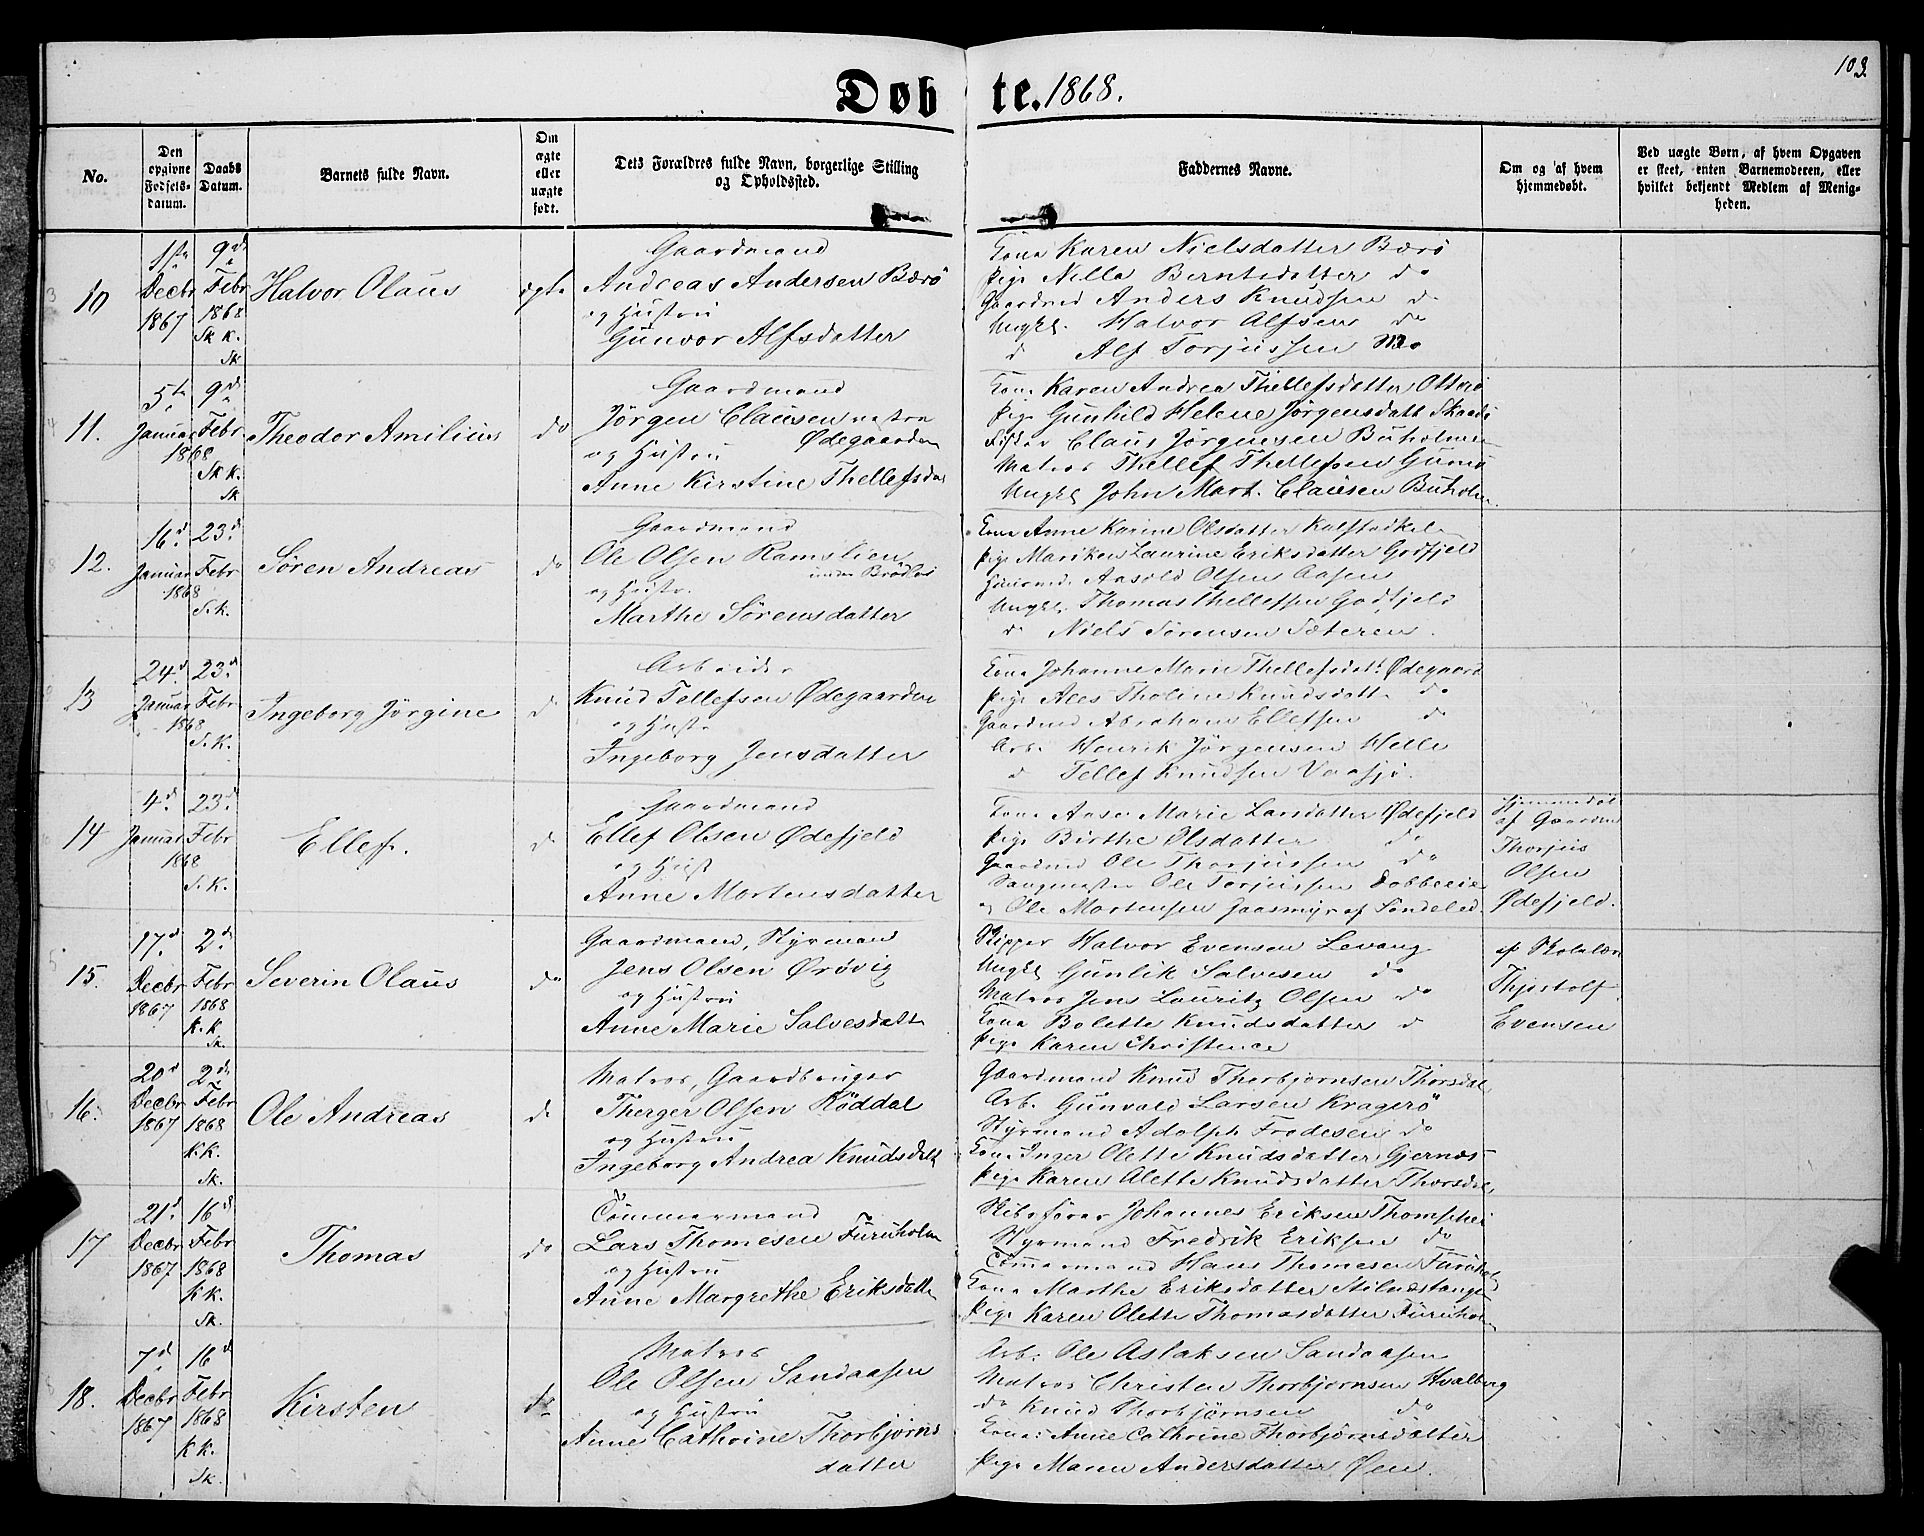 103.
Døbte. 1868.
No.
Den opgivne Fødsels-datum.
Daabs Datum.
Barnets fulde Navn.
Om ægte eller uægte født.
Dets Forældres fulde Navn, borgerlige Stilling og Opholdssted.
Faddernes Navne.
Om og af hvem hjemmedøbt.
Ved uægte Børn, af hvem Opgaven er skeet, enten Barnemoderen, eller hvilket bekjendt Medlem af Menigheden.
10
1ste Decbr 1867
9de Febr 1868 Sk k. Sk
Halvor Olaus
ægte
Gaardmand
Andreas Andersen Bærø
og Hustru
Gunvor Alfsdatter
Kona Karen Nielsdatter Bærö
Pige Nilla Berntsdatter do
Gaardmd Anders Knudsen do
Ungkl. Halvor Alfsen do
d Alf Torjussen Mo
11.
5t Januar 1868
9de Febr Sk k. Sk
Theodor Amilius
do
Gaardmand
Jørgen Clausen
Ødegaarden
og Hustru
Anne Kirstine Thellefsdat
Kona Karen Andrea Thellefsdatter Otterø
Pige Gunhild Helene Jørgensdatt
Fisker Claus Jørgensen Buholmen
Matros Thellef Thellefsen
Ungkl John Mart. Clausen Buholm
12.
16d. Januar 1868
23d. Febr S. k.
Søren Andreas
do
Gaardmand
Ole Olsen Ramslien
under
og Hustr.
Marthe Sörensdatter
Kona Anne Karine Olsdatter
Pige Mariken Laurine Eriksdatter Godfjeld
Olsen Aasen
Ungkl. Thomas Thellefsen Godfjeld
d Niels Sørensen Sæteren.
13
24d Januar 1868
23d. Febr S. K.
Ingeborg Jørgine
d
Arbeider
Knud Tellefsen Ødegaarden
og Hustr
Ingeborg Jensdatter
Kona Johanne Marie Thellefsdatt Ødegaard
Pige Ales Tholine Knudsdatt do
Gaardmd Abraham Ellefsen do
Arb. Henrik Jørgensen Helle
d Tellef Knudsen Vaasjø.
14
4d. Januar 1868
23d. Febr S. K.
Ellef.
d
Gaardmand
Ellef Olsen Ødefjeld
og Hust
Anne Mortensdatter
Kona Anne Marie Larsdatter Ødefjeld
Pige Birthe Olsdatter do
Gaardmd Ole Thorjussen do
Ole Torjussen
Ole Mortensen Gaasmyr af Søndeled.
Hjemmedøbt
af Gaardm
Thorjus
Olsen
Ødefjeld.
15.
17d. Decbr 1867
2de. Febr 1868 k. k. Sk.
Severin Olaus
do
Gaardmand, Styrmand
Jens Olsen Ørövig
og Hustru
Anne Marie Salvesdatt
Skipper Halvor Evensen Levang
Ungkl Gunlik Salvesen do
Matros Jens Lauritz Olsen do
Kona Bolette Knudsdatter d
Pige Karen Christence
af Skolelær
Thjostolf
Evensen
16.
20d Decbr 1867
2de Febr 1868 k. K. Sk.
Ole Andreas
d
Matros, Gaardbruger
Therger Olsen Röddal
og Hustru
Ingeborg Andrea Knudsdatt
Gaardmand Knud Thorbjørnsen Thorsdal
Arb. Gunvald Larsen Kragerö
Styrmand Adolph Frodesen do
Kona Inger Olette Knudsdatter Gjernæs
Pige Karen Alette Knudsdatter Thorsdal
17
21d. Decbr 1867
16d Febr 1868 K k. Sk.
Thomas
do
Tömmermand
Lars Thomesen Furuholm
og Hustru
Anne Margrethe Eriksdatte
Skibsfører Johannes Eriksen
Styrmand Fredrik Eriksen do
Tömmermand Hans Thomesen Furuhol
Kona Marthe Eriksdatter
Pige Karen Olette Thomasdatter Furuholm
18.
7d Decbr 1867
16d Febr 1868 K k. Sk.
Kirsten
do
Matros
Ole Olsen Sandaasen
og Hustru
Anne Cathrine Thorbjørns
datter
Arb. Ole Aslaksen Sandaasen
Matros Christen Thorbjørnsen Hvalberg
do Knud Thorbjørnsen do
Kona: Anne Cathrine Thorbjørnsdatter
Pige Maren Andersdatter Øen.